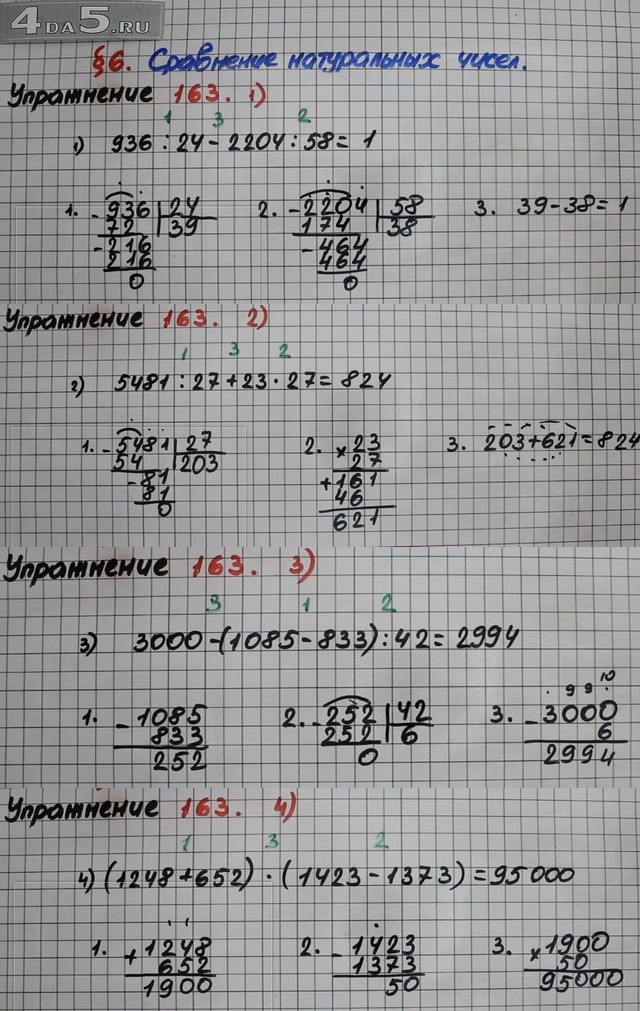 4DA5.RU
§6. Сравнение натуральных чисел.
Упражнение 163. 1)
1 3 2
1) 936 : 24 - 2204 : 58 = 1
1. - 936 | 24 2. - 2204 | 58 3. 39 - 38 = 1
72 | 39 174 | 38
- 216 - 464
216 464
0 0
Упражнение 163. 2)
1 3 2
2) 5481 : 27 + 23 · 27 = 824
1. - 5481 | 27 2. × 23 3. 203 + 621 = 824
54 | 203 27
- 81 + 161
81 46
0 621
Упражнение 163. 3)
3 1 2
3) 3000 - (1085 - 833) : 42 = 2994
. 9 9 10
1. - 1085 2. - 252 | 42 3. - 3000
833 252 | 6 6
252 0 2994
Упражнение 163. 4)
1 3 2
4) (1248 + 652) · (1423 - 1373) = 95000
1. + 1248 2. - 1423 3. × 1900
652 1373 50
1900 50 95000